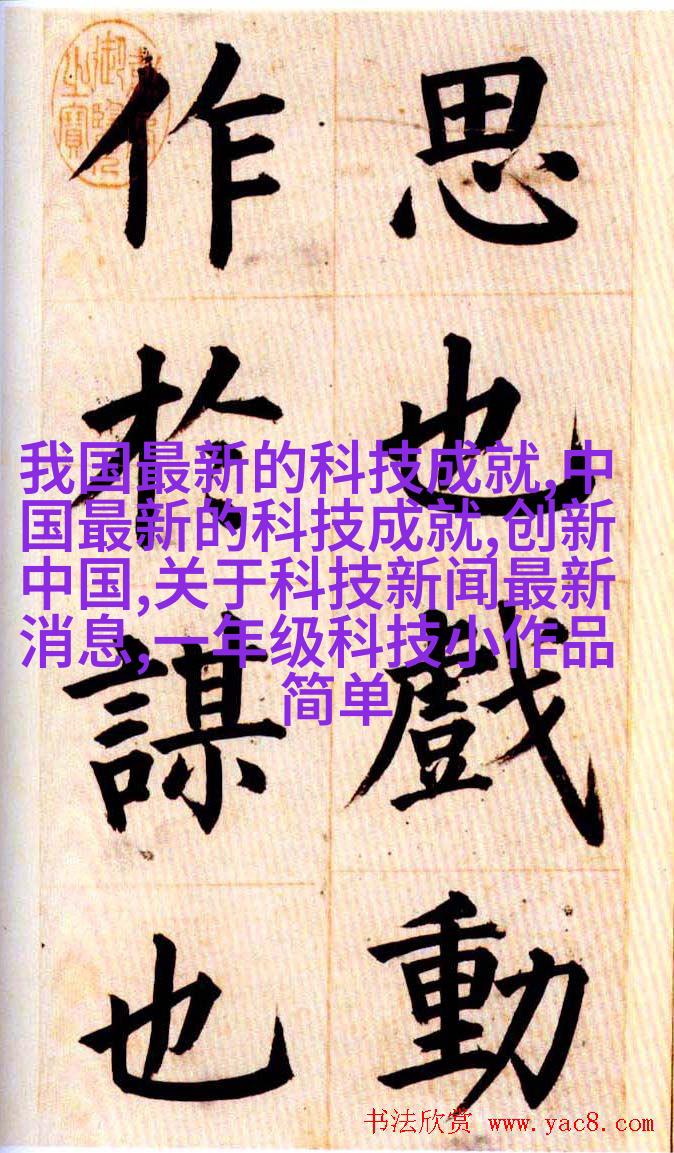 思也戲動
作於謀也
我国最新的科技成就,中
国最新的科技成就,创新
中国,关于科技新闻最新
消息,一年级科技小作品
简单
书法欣赏 www.yac8.com